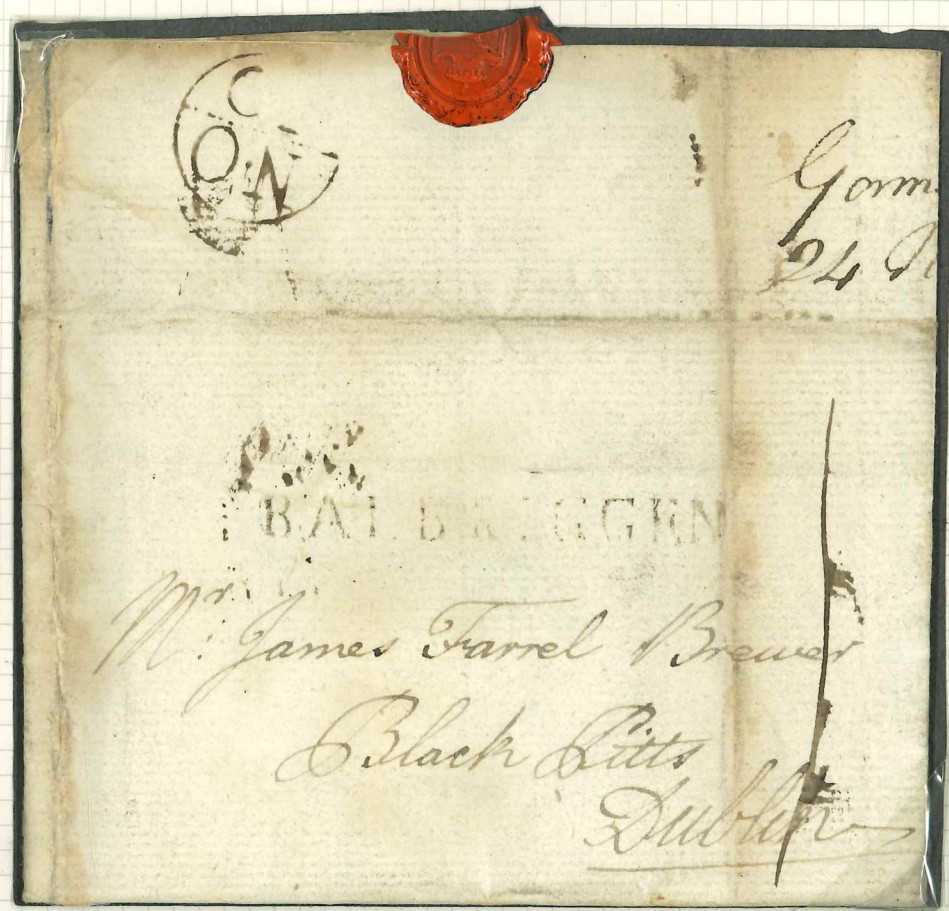 C
OW
Gorm
24
BALBRIGGEN
Mr. James Farrel Brewer
Black Pitts
Dublin